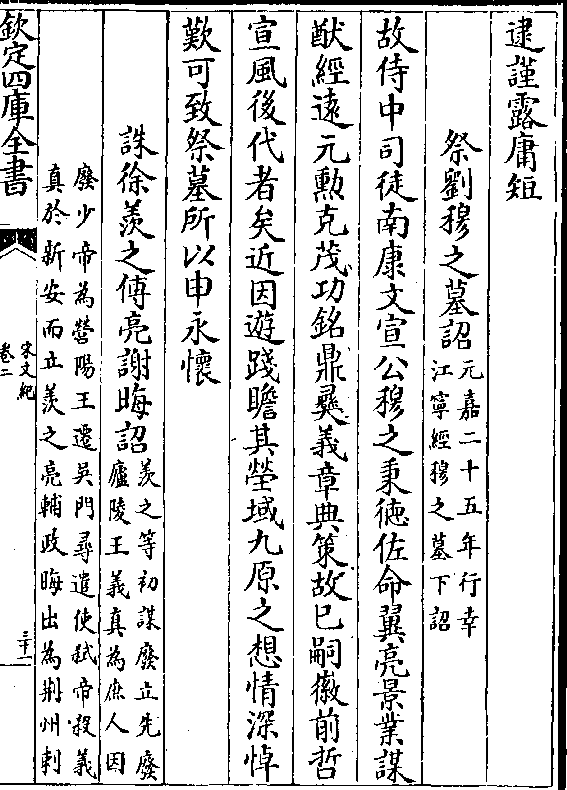 逮謹露庸短
祭劉穆之墓詔元嘉二十五年行幸
江寧經穆之墓下詔
故侍中司徒南康文宣公穆之秉徳佐命翼亮景業謀
猷經逺元勲克茂功銘鼎彛義章典策故已嗣徽前哲
宣風後代者矣近因遊踐瞻其塋域九原之想情深悼
歎可致祭墓所以申永懷
誅徐羨之傅亮謝晦詔羨之等初謀廢立先廢
廬陵王義真為庶人因
廢少帝為營陽王遷吳門尋遣使弑帝殺義
真於新安而立羨之亮輔政晦出為荆州刺
欽定四庫全書
宋文紀
卷二
三十一